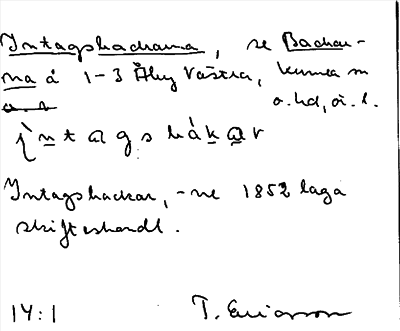 Intagsbackarna, se Backar-
na å 1-3 Åby Västra, Kumla sn
o.hd, ö.l.
i`n t a g s bákar
Intagsbackar, -ne 1852 laga
skifteshandl.
14:1 T. Ericsson